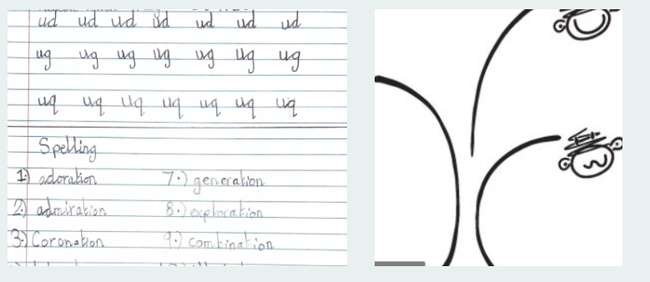 ud ud ud ud ud ud ud
ug ug ug ug ug ug ug
uq uq uq uq uq uq uq
Spelling
1.) adoration 7.) generation
2.) admiration 8.) exploration
3.) Coronation 9.) combination